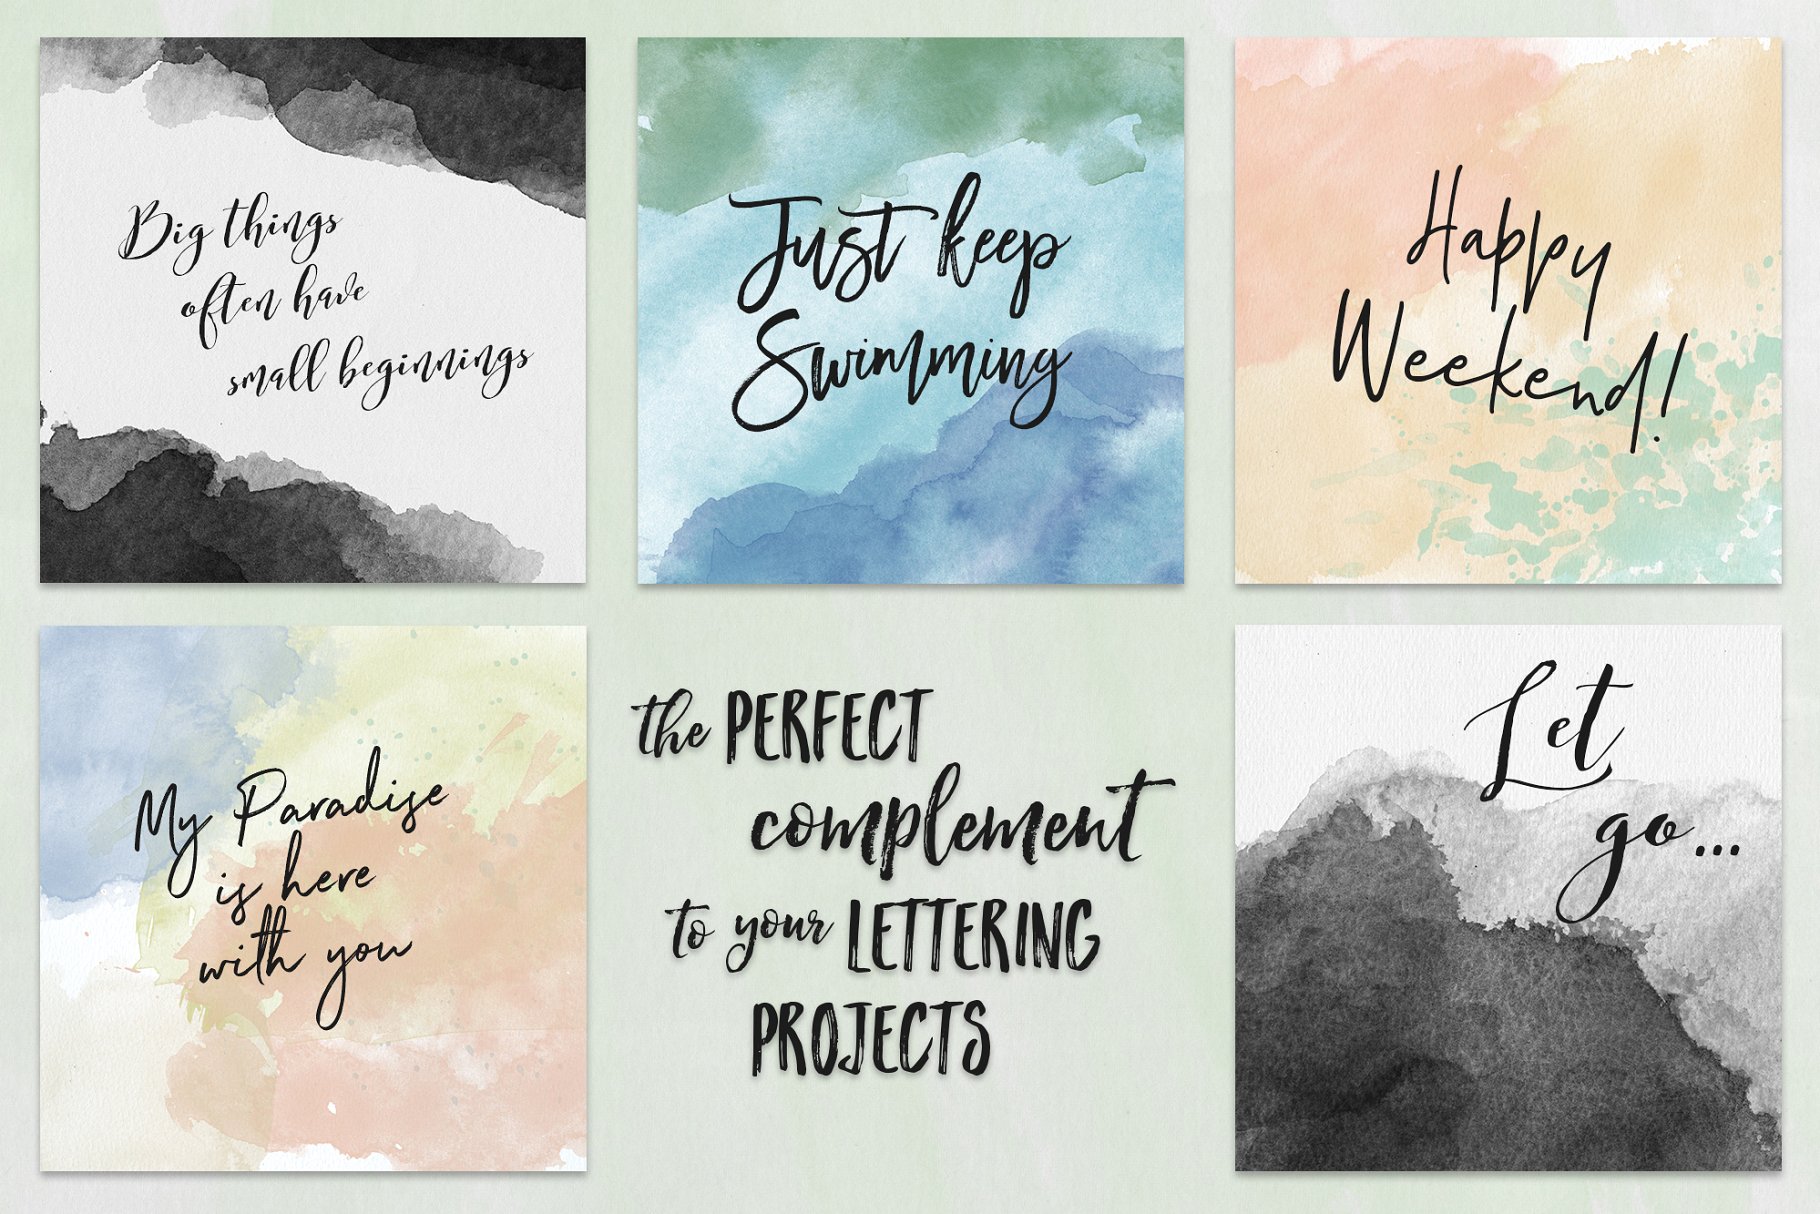 Big things
often have
small beginnings
Just keep
Swimming
Happy
Weekend!
My Paradise
is here
with you
the PERFECT
complement
to your LETTERING
PROJECTS
Let
go...